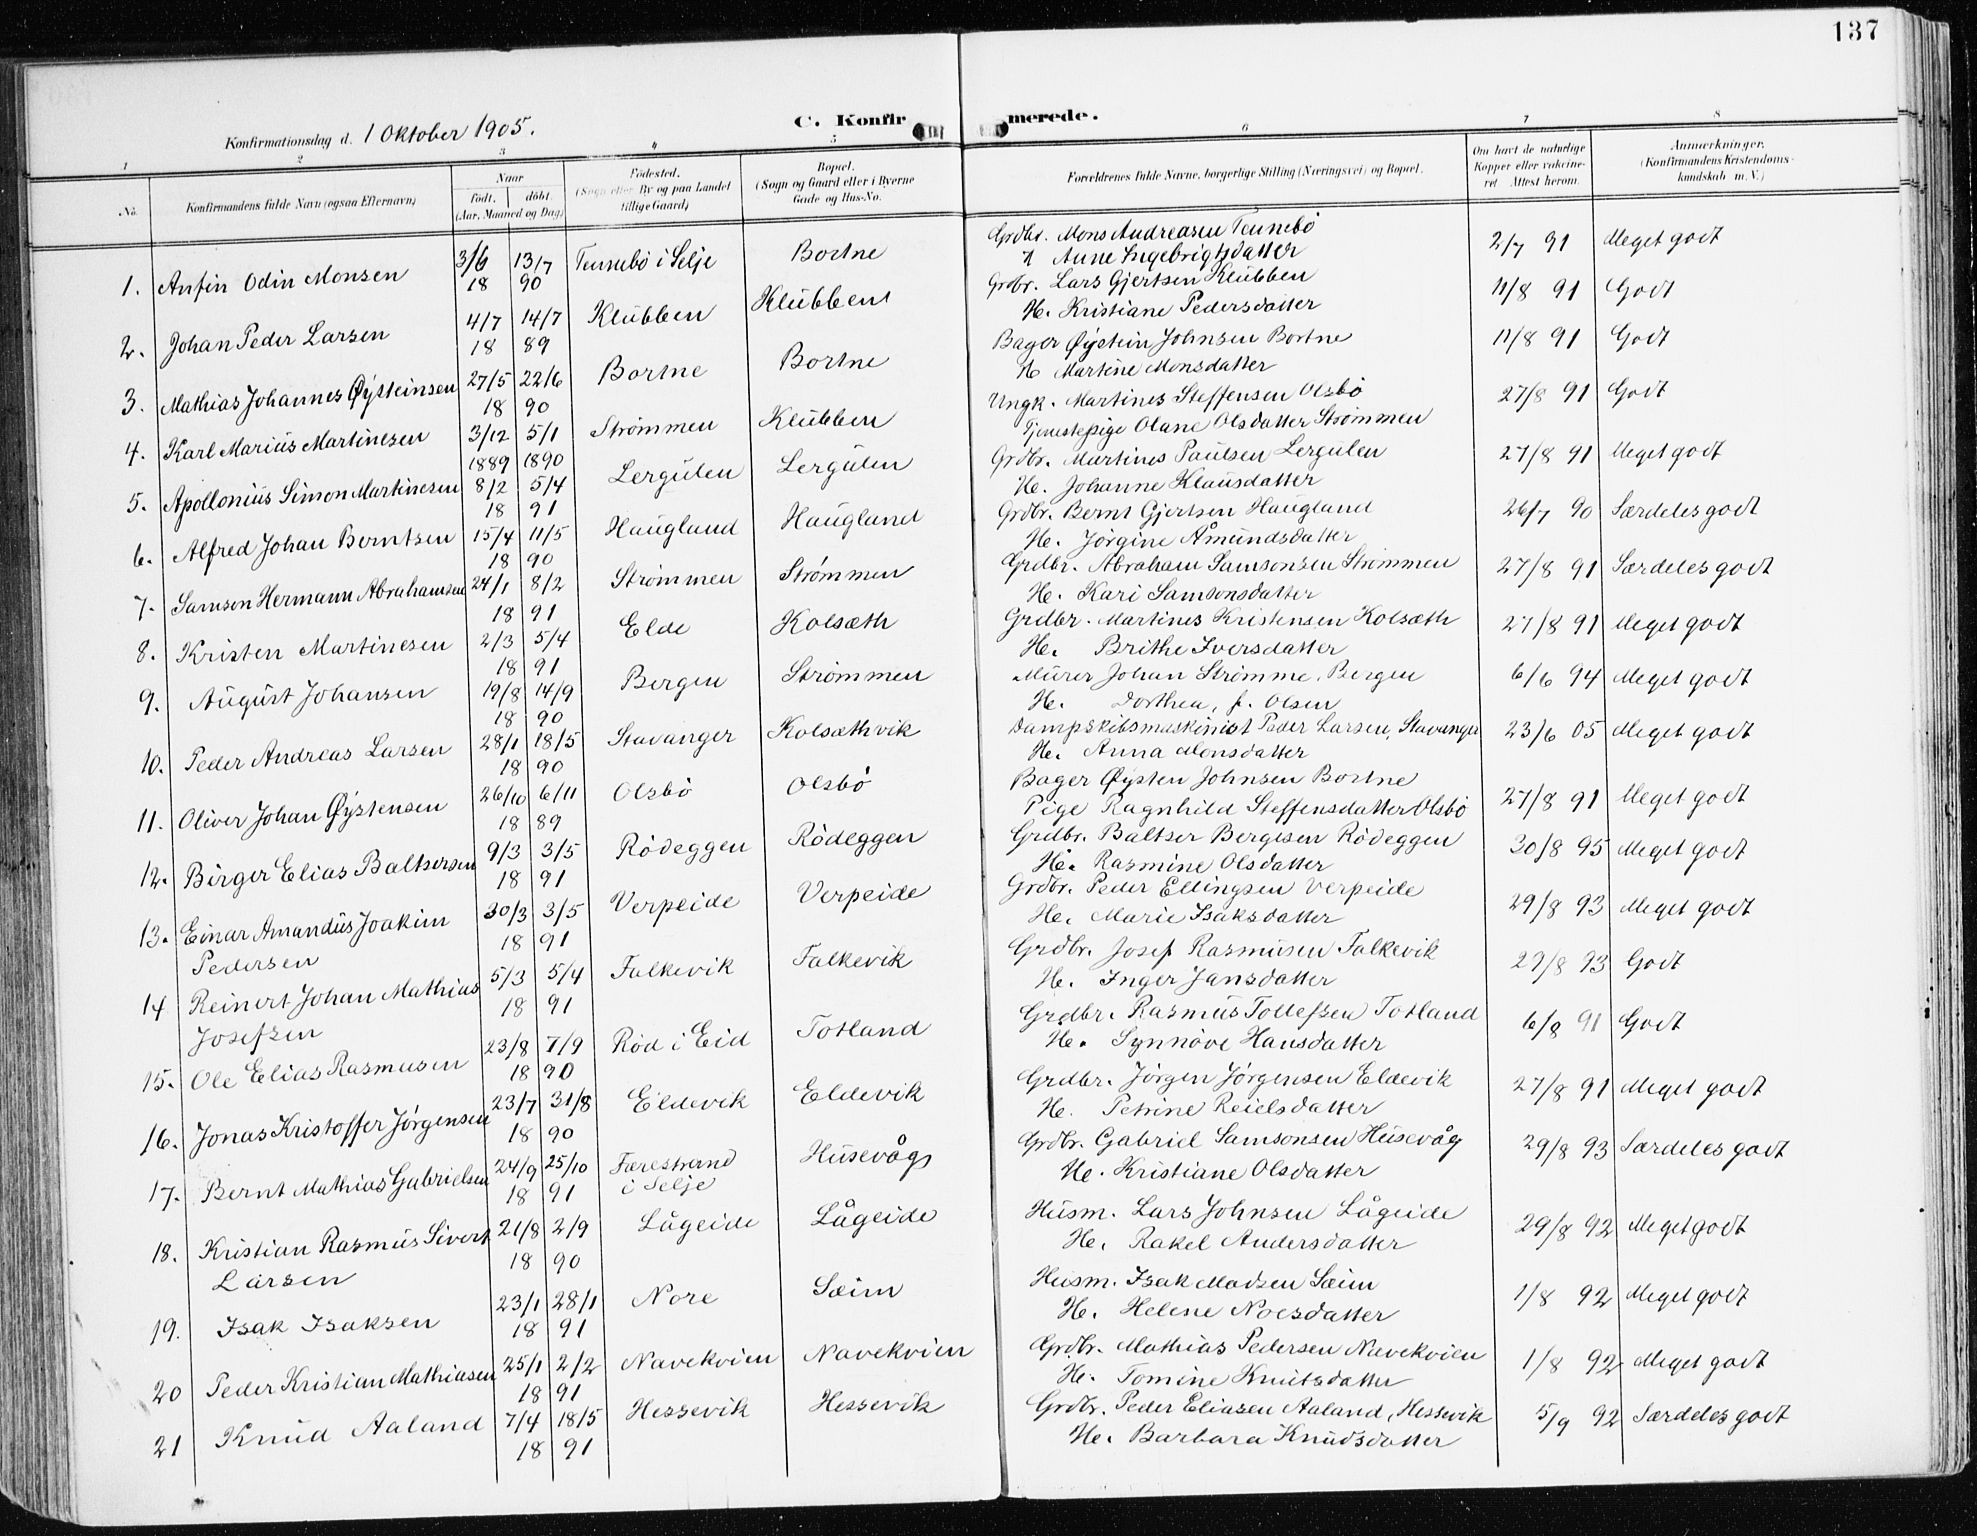 137
C. Konfirmerede.
Konfirmationsdag d. 1 Oktober 1905.
1 2 3 4 5 6 7 8
No. Konfirmandens fulde Navn (ogsaa Efternavn) Naar født. døbt. (Aar, Maaned og Dag) Fødested. (Sogn eller By og paa Landet tillige Gaard) Bopæl. (Sogn og Gaard eller i Byerne Gade og Hus-No. Forældrenes fulde Navne, borgerlige Stilling (Næringsvei) og Bopæl. Om havt de naturlige Kopper eller vakcineret. Attest herom. Anmærkninger. (Konfirmandens Kristendomskundskab m.V.)
1. Anfin Odin Monsen 3/6 13/7 18 90 Tennebö i Selje Bortne Grdbr. Mons Andreasen Tennebö 2/7 91 Meget godt
H Anne Ingebrigtsdatter
2. Johan Peder Larsen 4/7 14/7 18 89 Klubben Klubben Grdbr. Lars Gjertsen Klubben 11/8 91 Godt
He. Kristiane Pedersdatter
3. Mathias Johannes Øysteinsen 27/5 22/6 18 90 Bortne Bortne Bager Øystein Johnsen Bortne 11/8 91 Godt
He Martine Monsdatter
4. Karl Marius Martinesen 3/12 5/1 1889 1890 Strømmen Klubben Ungk. Martines Steffensen Olsbö 27/8 91 Godt
Tjenestepige Olane Olsdatter Strømmen
5. Apollonius Simon Martinesen 8/2 5/4 18 91 Lergulen Lergulen Grdbr. Martines Paulsen Lergulen 27/8 91 Meget godt
He. Johanne Klausdatter
6. Alfred Johan Berntsen 15/4 11/5 18 90 Haugland Haugland Grdbr. Bernt Gjertsen Haugland 26/7 90 Særdeles godt
He. Jørgine Åmundsdatter
7. Samson Hermann Abrahamsen 24/1 8/2 18 91 Strømmen Strømmen Grdbr. Abraham Samsonsen Strømmen 27/8 91 Særdeles godt
He. Kari Samsonsdatter
8. Kristen Martinesen 2/3 5/4 18 91 Elde Kolsæth Grdbr. Martines Kristensen Kolsæth 27/8 91 Meget godt
He. Brithe Iversdatter
9. August Johansen 19/8 14/9 18 90 Bergen Strømmen Murer Johan Strømme, Bergen 6/6 94 Meget godt
He. Dorthea, f. Olsen
10. Peder Andreas Larsen 28/1 18/5 18 90 Stavanger Kolsæthvik Dampskibsmaskinist Peder Larsen, Stavanger 23/6 05 Meget godt
He. Anna Monsdatter
11. Oliver Johan Øystensen 26/10 6/11 18 89 Olsbö Olsbö Bager Øysten Johnsen Bortne 27/8 91 Meget godt
Pige Ragnhild Steffensdatter Olsbö
12. Birger Elias Baltsersen 9/3 3/5 18 91 Rödeggen Rödeggen Grdbr. Baltser Bergesen Rödeggen 30/8 95 Meget godt
He. Rasmine Olsdatter
13. Einar Amandus Joakim 30/3 3/5 18 91 Verpeide Verpeide Grdbr. Peder Ellingsen Verpeide 29/8 93 Meget godt
Pedersen He. Marie Isaksdatter
14 Reinert Johan Mathias 5/3 5/4 18 91 Falkevik Falkevik Grdbr. Josef Rasmusen Falkevik 29/8 93 Godt
Josefsen He. Inger Jansdatter
15. Ole Elias Rasmusen 23/8 7/9 18 90 Rød i Eid Totland Grdbr. Rasmus Tollefsen Totland 6/8 91 Godt
He. Synnöve Hansdatter
16. Jonas Kristoffer Jørgensen 23/7 31/8 18 90 Eldevik Eldevik Grdbr. Jörgen Jörgensen Eldevik 27/8 91 Meget godt
He. Petrine Reielsdatter
17. Bernt Mathias Gabrielsen 24/9 25/10 18 91 Færestrand i Selje Husevåg Grdbr. Gabriel Samsonsen Husevåg 29/8 93 Særdeles godt
He. Kristiane Olsdatter
18. Kristian Rasmus Sivert 21/8 2/9 18 90 Lågeide Lågeide Husm. Lars Johnsen Lågeide 29/8 92 Meget godt
Larsen He. Rakel Andersdatter
19. Isak Isaksen 23/1 28/1 18 91 Nore Sæim Husm. Isak Madsen Sæim 1/8 92 Meget godt
He. Helene Noesdatter
20 Peder Kristian Mathiasen 25/1 2/2 18 91 Navekvien Navekvien Grdbr. Mathias Pedersen Navekvien 1/8 92 Meget godt
He. Tomine Knutsdatter
21 Knud Aaland 7/4 18/5 18 91 Hessevik Hessevik Grdbr. Peder Eliasen Aaland, Hessevik 5/9 92 Særdeles godt
He. Barbara Knudsdatter